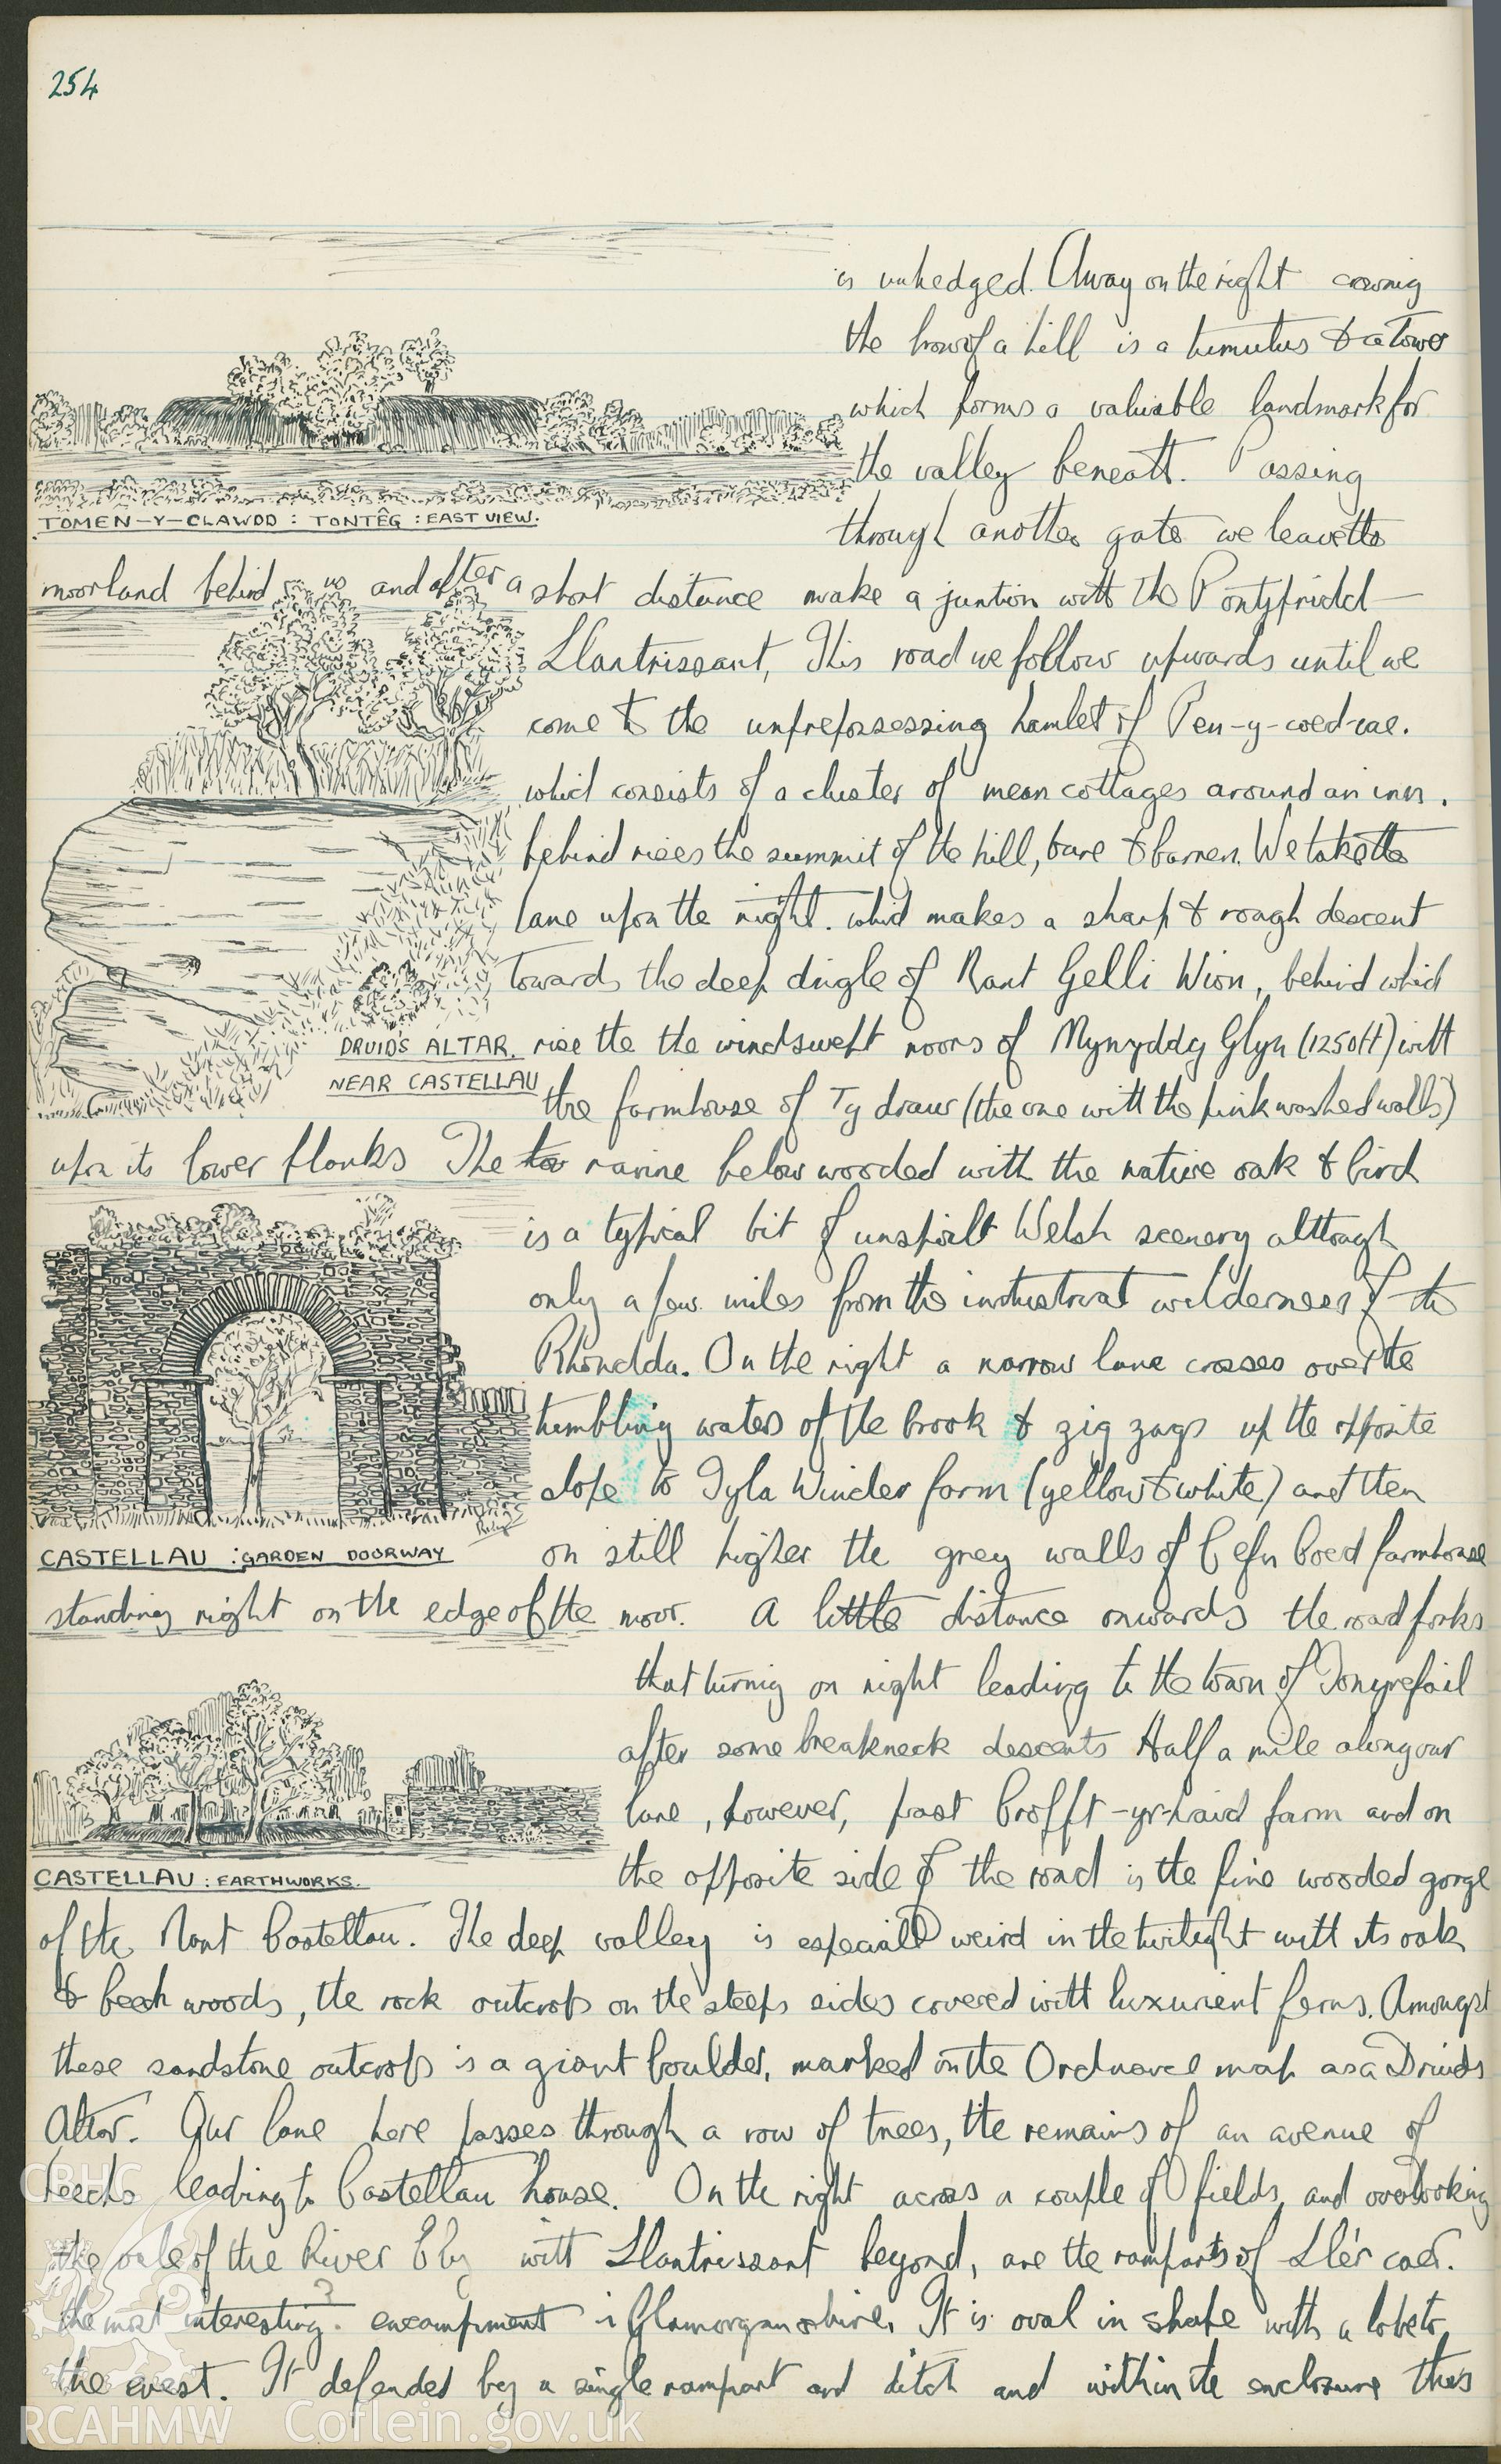 254
is unhedged. Away on the right crowing
the brow of a hill is a tumulus & a tower
which forms a valuable landmark for
the valley beneath. Passing
TOMEN-Y-CLAWDD : TONTÊG : EAST VIEW.
through another gate we leave the
moorland behind us and after a short distance make a juntion with the Pontypridd
Llantrissant, This road we follow upwards until we
come to the unprepossessing hamlet of Pen-y-coed-cae.
which consists of a cluster of mean cottages around an inn.
behind rises the summit of the hill, bare & barren. We take the
lane upon the right. which makes a sharp & rough descent
towards the deep dingle of Nant Gelli Wion, behind which
DRUID'S ALTAR.
NEAR CASTELLAU
rise the the windswept moors of Mynyddy Glyn (1250ft) with
the farmhouse of Ty draw (the one with the pink washed walls)
upon its lower flanks The ravine below wooded with the native oak & birch
is a typical bit of unspoilt Welsh scenery although
only a few miles from the industrial wilderness of the
Rhondda. On the right a narrow lane crosses over the
tumbling waters of the brook & zig zags up the opposite
slope to Tyla Winder farm (yellow & white) and then
CASTELLAU : GARDEN DOORWAY
on still higher the grey walls of Cefn Coed farmhouse
standing right on the edge of the moor. A little distance onwards the road forks
that turning on right leading to the town of Tonyrefail
after some breakneck descents Half a mile along our
lane, however, past Crofft-yr-haid farm and on
CASTELLAU : EARTHWORKS.
the opposite side of the road is the fine wooded gorge
of the Nant Castellau. The deep valley is especiall weird in the twilight with its oak
& beech woods, the rock outcrops on the steep sides covered with luxurient ferns. Amongst
these sandstone outcrops is a giant boulder, marked on the Ordnance map as a Druids
Altar. Our lane here passes through a row of trees, the remains of an avenue of
beechs leading to Castellau house. On the right across a couple of fields, and overlooking
the vale of the River Ely with Llantrissant beyond, are the ramparts of Lle'r caer.
the most interesting ? encampment in Glamorganshire. It is oval in shape with a lobe to
the west. It defended by a single rampart and ditch and within the enclosure thers
CBHC
RCAHMW Coflein.gov.uk